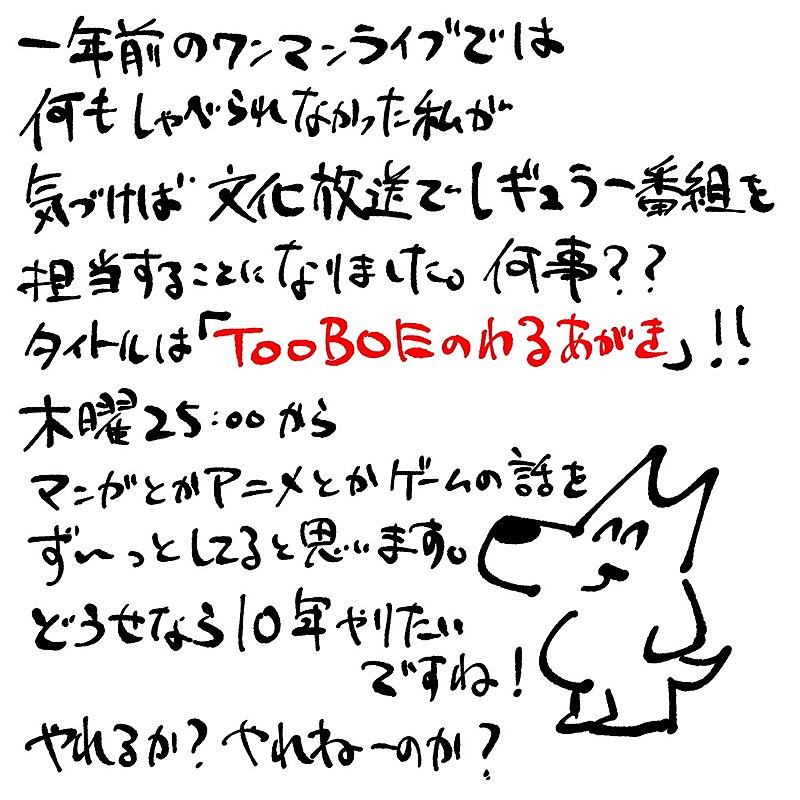 一年前のワンマンライブでは
何もしゃべられなかった私が
気づけば文化放送でレギュラー番組を
担当することになりました。何事??
タイトルは「TOOBOEのわるあがき」!!
木曜25:00から
マンガとかアニメとかゲームの話を
ず〜っとしてると思います。
どうせなら10年やりたい
ですね!
やれるか?やれねーのか?